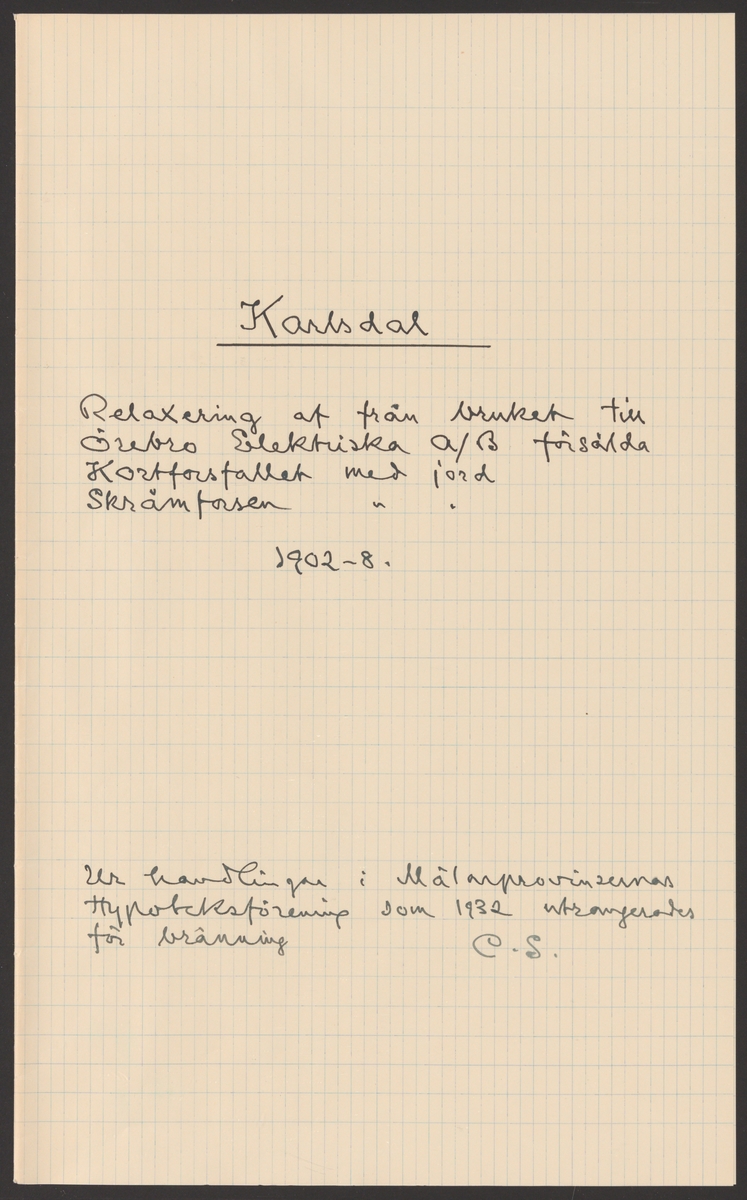 Karlsdal
Relaxering af från bruket till
Örebro Elektriska A/B försålda
Kortforsfallet med jord
Skråmforsen " "
1902-8.
Ur handlingar i Mälarprovinsernas
Hypoteksförening som 1932 utrangerades
för bränning C.S.